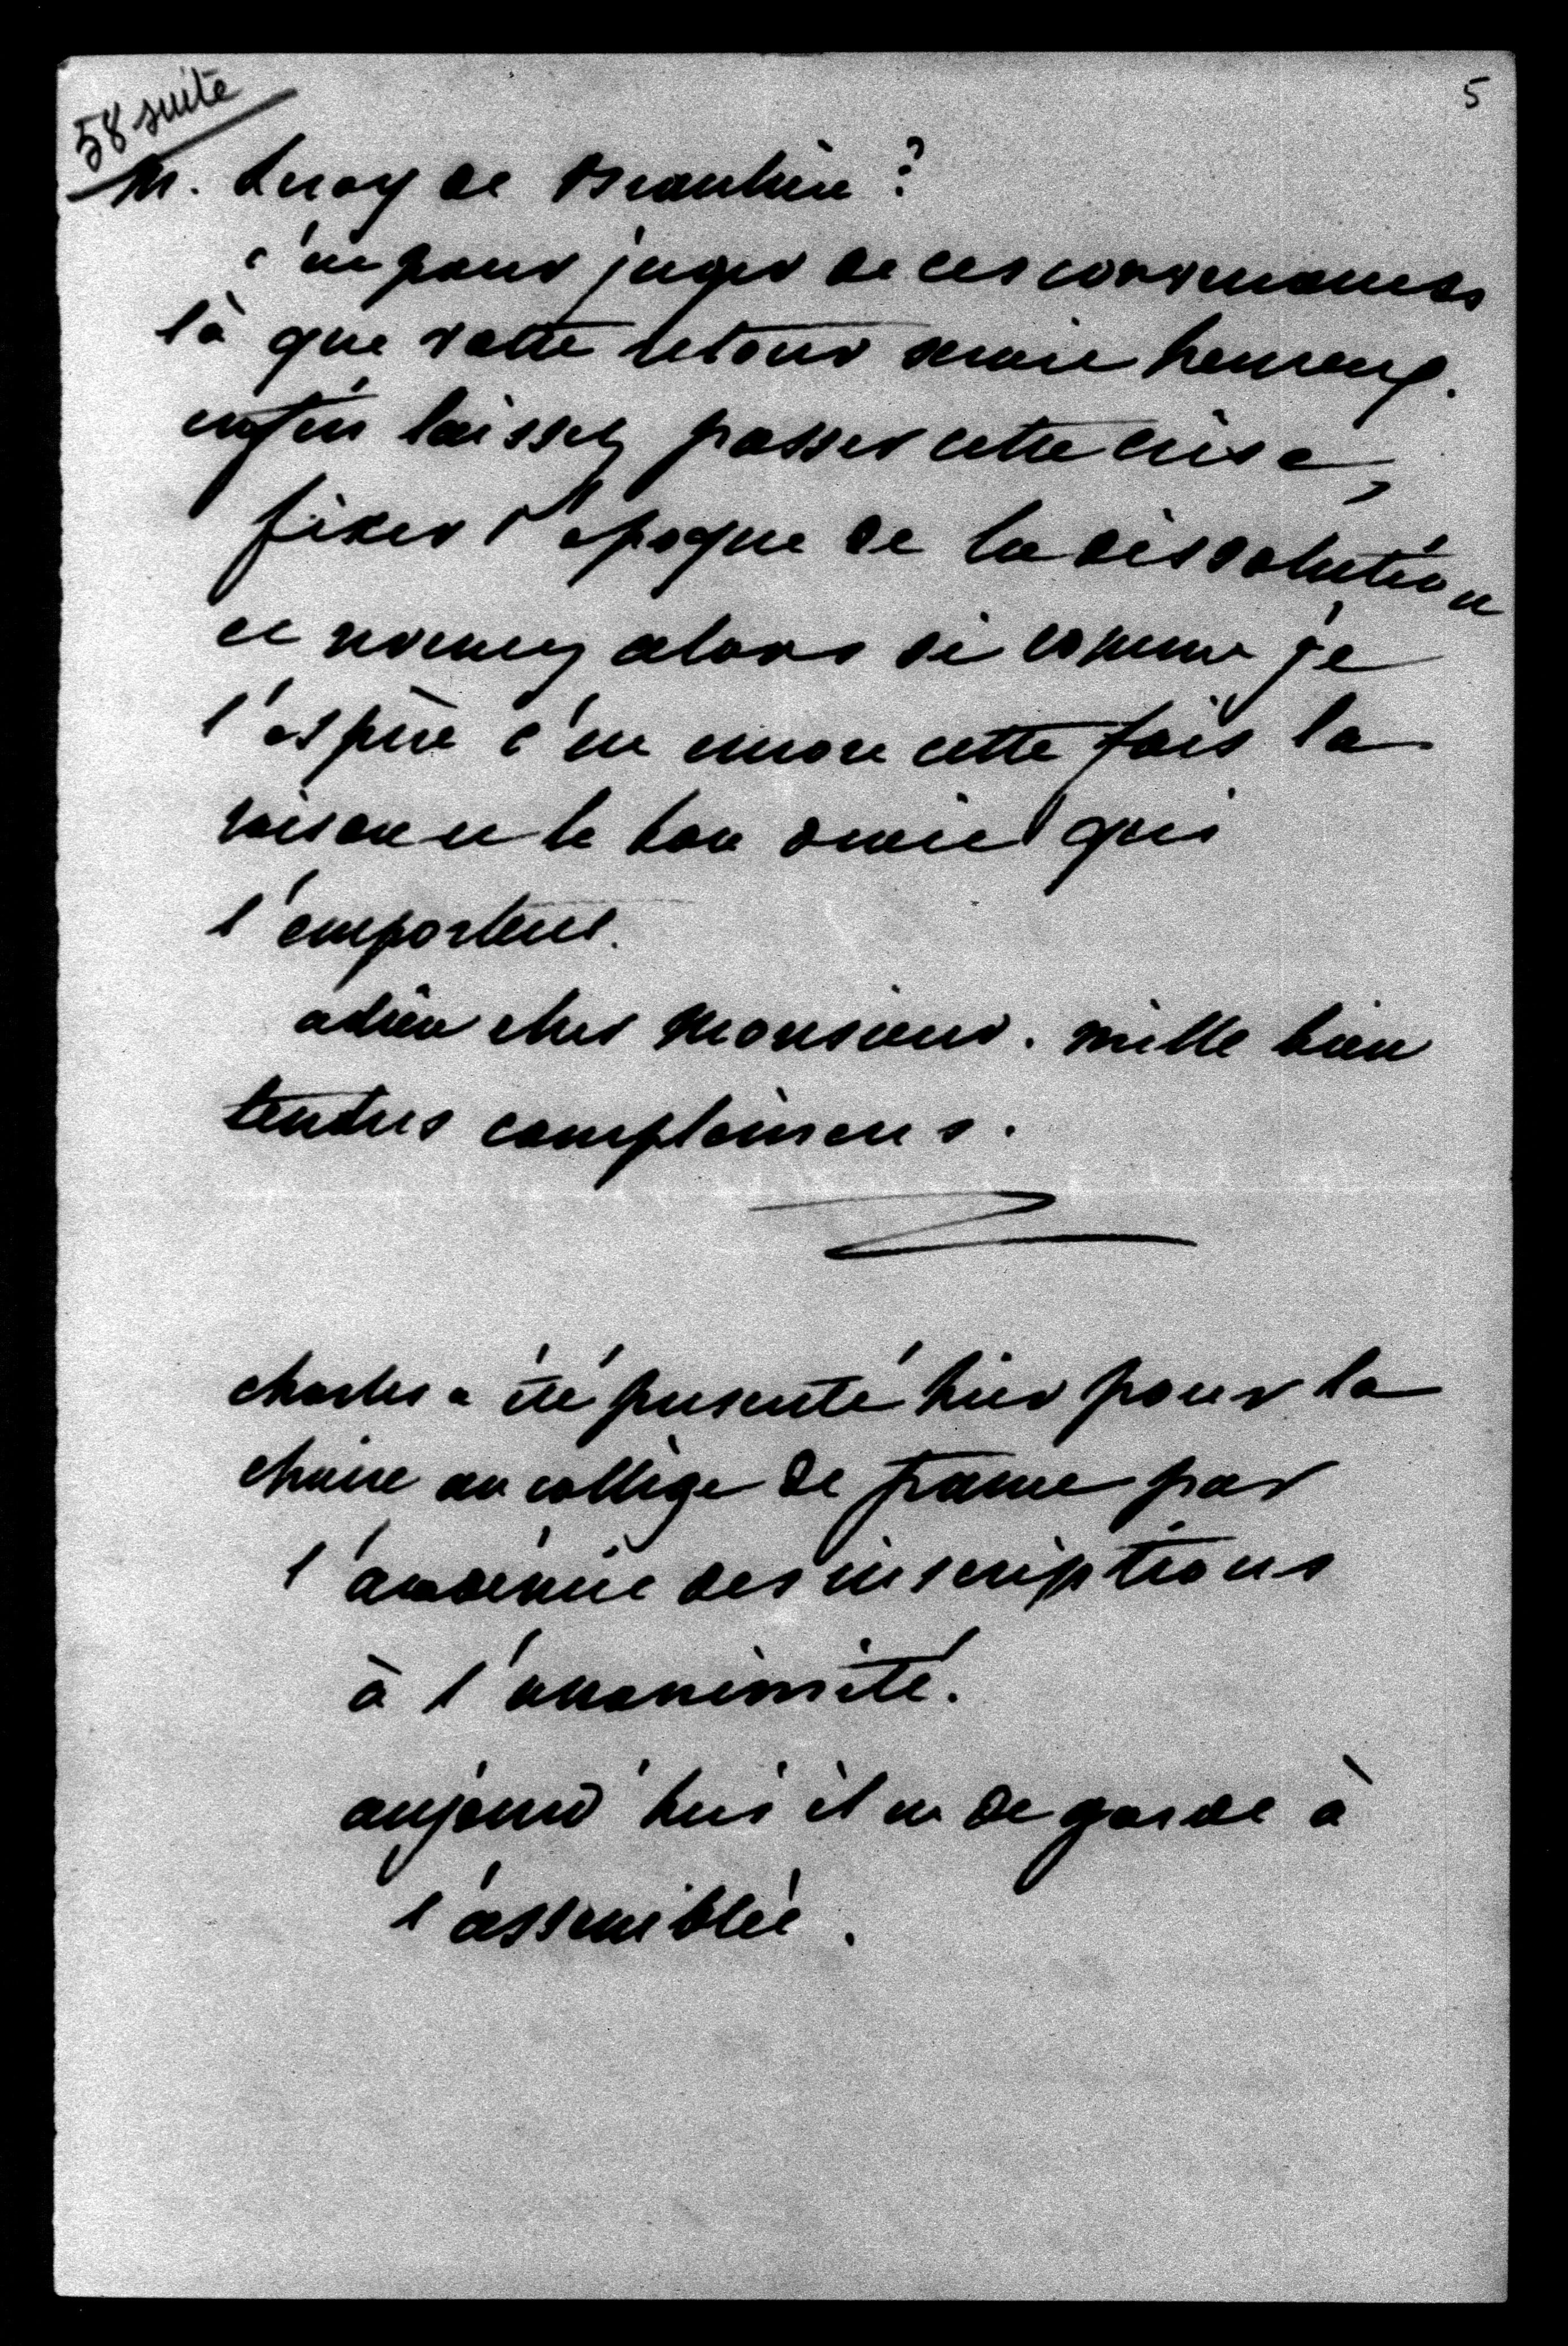 58 suite
5
M. Leroy de Beaulieu ?
c'est pour juger de ces convenances
là que votre retour serait heureux.
enfin laissez passer cette crise,
fixer l'époque de la dissolution
et revenez alors si comme je
l'espère c'est encore cette fois la
raison et le bon droit qui
l'emportent.
adieu cher Monsieur. mille bien
tendres complimens.
charles a été présenté hier pour la
chaire au collège de france par
l'académie des inscriptions
à l'unanimité.
aujourd'hui il est de garde à
l'assemblée.